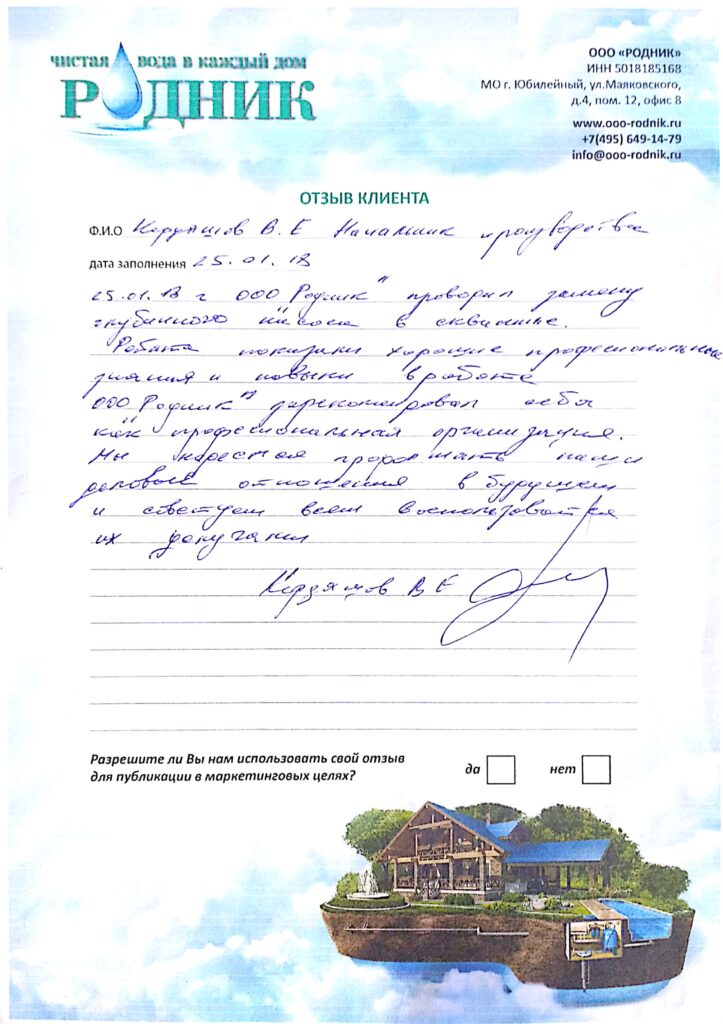 чистая вода в каждый дом
РОДНИК
ООО «РОДНИК»
ИНН 5018185168
МО г. Юбилейный, ул.Маяковского,
д.4, пом. 12, офис 8
www.ooo-rodnik.ru
+7(495) 649-14-79
info@ooo-rodnik.ru
ОТЗЫВ КЛИЕНТА
Ф.И.О В. Е Начальник производства
дата заполнения 25.01.18
25.01.18 г ООО "Родник" проводил замену
глубинного насоса в скважине.
Работа показали хорошие професиональные
знания и навыки в работе
ООО "Родник" зарекомендовал себя
как професиональная организация.
Мы надеемся продолжать наши
деловые отношения в будущем
и советуем всем воспользоватся
их
В Е
Разрешите ли Вы нам использовать свой отзыв
для публикации в маркетинговых целях?
да нет